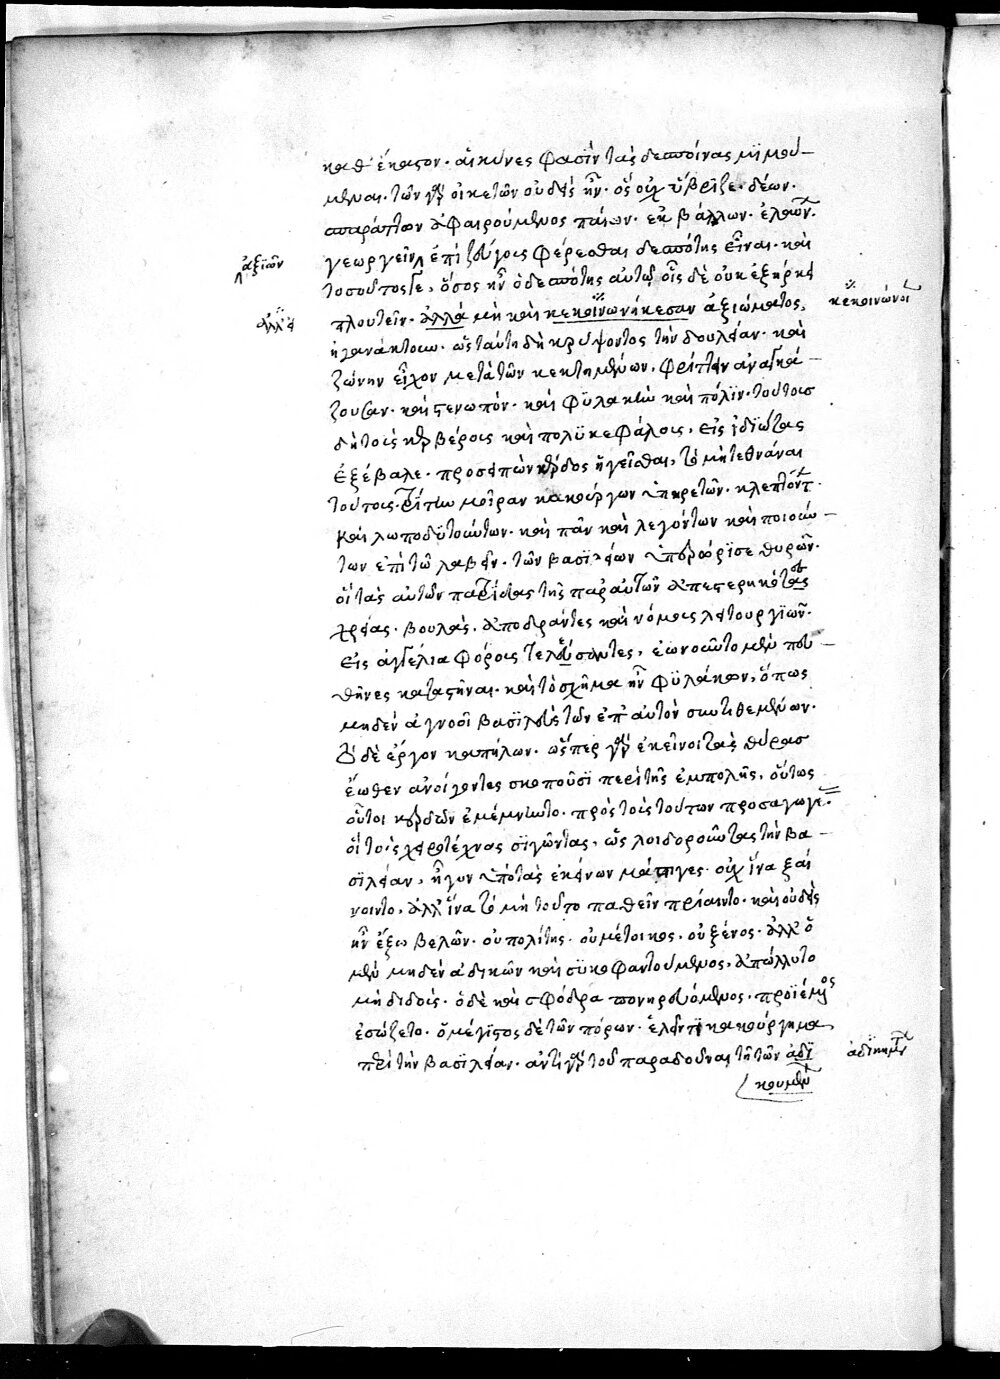 καθ' ἕκαστον· αἱ κύνες φασὶν τὰς δεσποίνας μιμού-
μεναι· τῶν γὰρ οἰκετῶν οὐδεὶς ἦν· ὃς οὐχ ὕβριζε· δέων·
ἀφαιρούμενος παίων· ἐκβάλλων· ἐλαύν·
ἀξιῶν
γεωργεῖν ἐπὶ ζεύγους φέρεσθαι δεσπότης εἶναι· καὶ
τοσοῦτος γε, ὅσος ἦν ὁ δεσπότης αὐτῷ οἷς δὲ οὐκ ἐξήρκει
κεκοινώνοι
ἀλλ' εἰ
πλουτεῖν· ἀλλὰ μὴ καὶ κεκοινωνήκεσαν ἀξιώματος,
ἠγανάκτουν· ὡς ταύτῃ δὴ κρύψοντος τὴν δουλείαν· καὶ
ζώνην εἶχον μετὰ τῶν κεκτημένων, φρίττειν ἀναγκά-
ζουσαν· καὶ στενωπὸν· καὶ φύλακα καὶ πόλιν· τούτους
δὴ τοὺς κερβέρους καὶ πολυκεφάλους, εἰς ἰδιώτας
ἐξέβαλε· προσειπὼν κέρδος ἡγεῖσθαι, τὸ μὴ τεθνάναι
τούτοις· τρίτην μοῖραν κακούργων ὑπηρετῶν· κλεπτόντ
καὶ λωποδυτούντων· καὶ πᾶν καὶ λεγόντων καὶ ποιούν-
των ἐπὶ τῷ λαβεῖν· τῶν βασιλείων ὑπερώρισε θυρῶν·
οἳ τὰς αὑτῶν πατρίδας τῆς παρ' αὑτῶν ἀπεστερηκότας
χρείας· βουλὰς, ἀποδράντες καὶ νόμους λειτουργιῶν·
εἰς ἀγγελιαφόρους τελεύσοντες, ἐωνοῦντο μὲν πευ-
θῆνες καταστῆναι· καὶ τὸ σχῆμα ἦν φυλάκων, ὅπως
μηδὲν ἀγνοοῖ βασιλεὺς τῶν ἐπ' αὐτὸν συντιθεμένων·
τὸ δὲ ἔργον καπήλων· ὥσπερ γὰρ ἐκεῖνοι τὰς θύρας
ἕωθεν ἀνοίγοντες σκοποῦσι περὶ τῆς ἐμπολῆς, οὕτως
οὗτοι κερδῶν ἐμέμνηντο· πρὸς τοὺς τούτων προσαγωγεῖς
οἳ τοὺς χειροτέχνας σιγῶντας, ὡς λοιδοροῦντας τὴν βα-
σιλείαν, ἦγον ὑπὸ τὰς ἐκείνων μάστιγας· οὐχ ἵνα ξαί
νοιντο, ἀλλ' ἵνα τὸ μὴ τοῦτο παθεῖν πρίαιντο· καὶ οὐδεὶς
ἦν ἔξω βελῶν· οὐ πολίτης· οὐ μέτοικος, οὐ ξένος· ἀλλ' ὁ
μὲν μηδὲν ἀδικῶν καὶ συκοφαντούμενος, ἀπώλλυτο
μὴ διδούς· ὁ δὲ καὶ σφόδρα πονηρευόμενος· προϊέμενος
ἐσώζετο· ὁ μέγιστος δὲ τῶν πόρων· ἑλεῖν τι κακούργημα
περὶ τὴν βασιλείαν· ἀντὶ γὰρ τοῦ παραδοῦναι τῇ τῶν ἀδι
ἀδικημέν
κουμέν